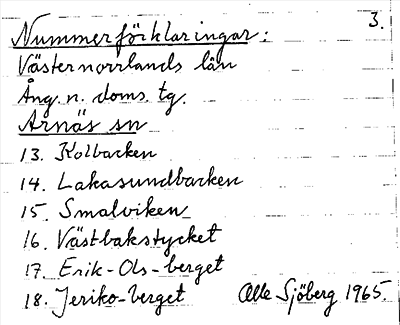 3.
Nummerförklaringar:
Västernorrlands län
Ång. n. doms. tg.
Arnäs sn
13. Kolbacken
14. Lakasundbacken
15. Smalviken
16. Västbakstycket
17. Erik-Ols-berget
18. Jeriko-berget Olle Sjöberg 1965.